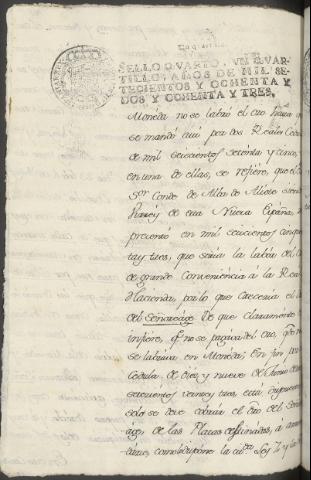 Un quartillo
SELLO QVARTO, VN QVAR-
TILLO, AÑOS DE MIL SE-
TECIENTOS Y OCHENTA Y
DOS Y OCHENTA Y TRES.
Moneda no se labró el oro hasta q.e
se mandó aqui por dos Reales Cedu
de mil seiscientos setenta y cinco,
en una de ellas, se refiere, que el
S.or Conde de Alba de Aliste siendo
Virrey de esta Nueva España,
presentó en mil seiscientos cinq
ta y tres, que seria la labor del
de grande Conveniencia á la Real
Hacienda, por lo que Creceria el
del Señoreage De que claramente
infiere, q.e no se pagava del oro, que no
se labrava en Moneda; en fin por
Cedula de diez y nueve de
setecientos veinte y tres, está
solo se deve cobrar el oro del Seño
age, de las Platas
como dispone la ley